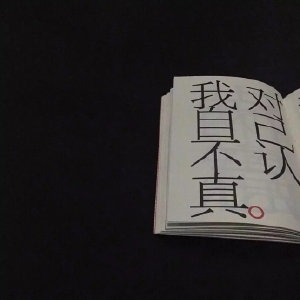 我对
自己
不认
真。